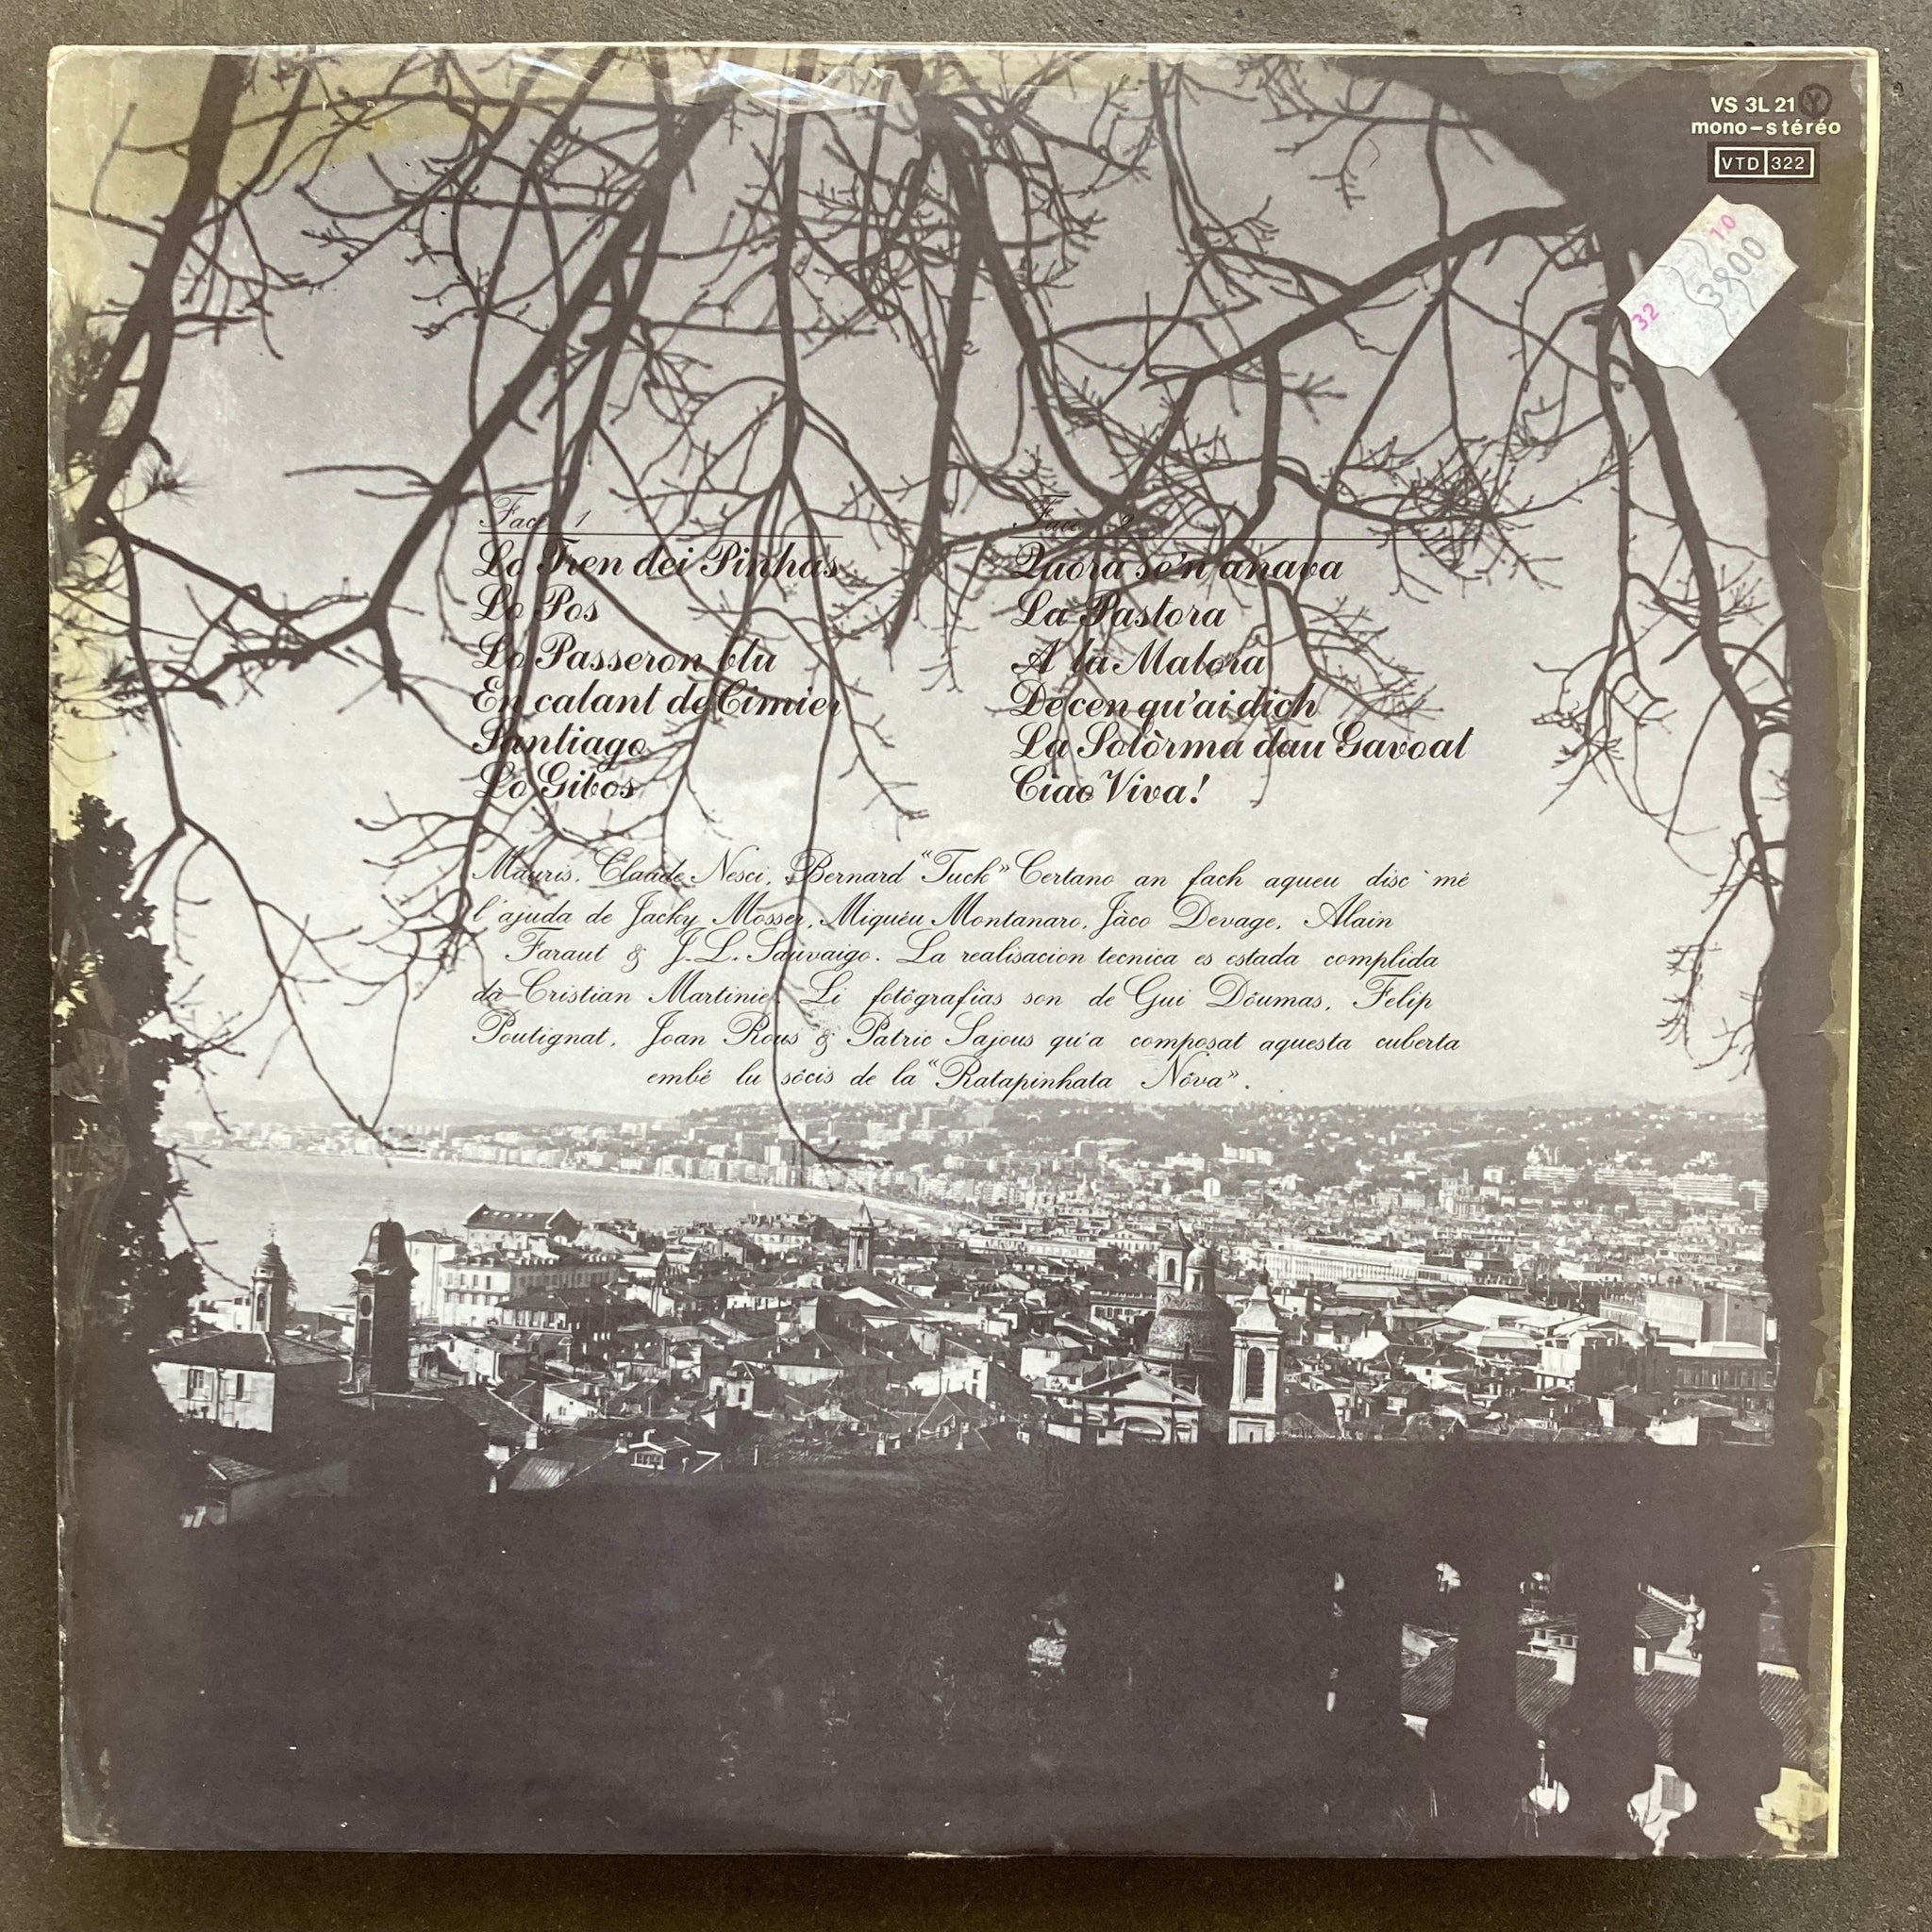 VS 3L 21 Y
mono-stéréo
VTD 322
10
3800
32
Face 1
Lo Tren dei Pinhas
Lo Pos
Lo Passeron blu
En calant de Cimier
Santiago
Lo Gibos
Face 2
Quora se'n anava
La Pastora
A la Malora
De cen qu'ai dich
La Solòrma dau Gavoat
Ciao Viva!
Mauris, Claude Nesci, Bernard "Tuck" Certano an fach aqueu disc mé
l'ajuda de Jacky Mosser, Miquéu Montanaro, Jàco Devage, Alain
Faraut & J.L. Sauvaigo. La realisacion tecnica es estada complida
da Cristian Martinie. Li fotógrafias son de Gui Dóumas, Felip
Poutignat, Joan Rous & Patric Sajous qu'a composat aquesta cuberta
embé lu sócis de la "Ratapinhata Nóva".